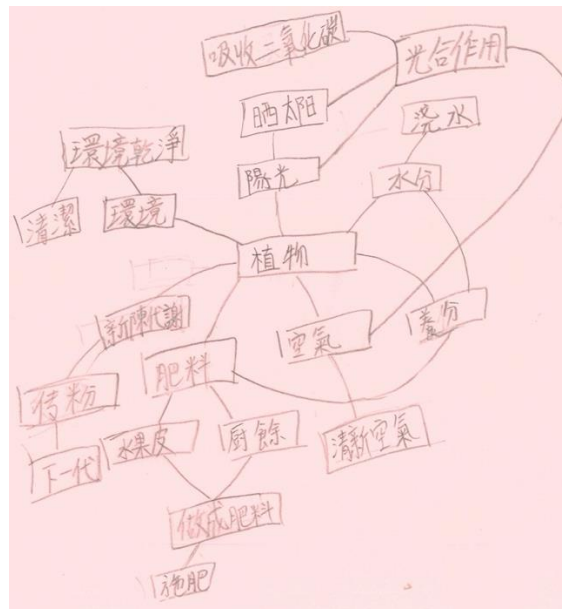 吸收二氧化碳
光合作用
晒太阳
浇水
環境乾淨
陽光
水分
清潔
環境
植物
新陳代謝
空氣
養分
肥料
傳粉
水果皮
廚餘
清新空氣
下一代
做成肥料
施肥